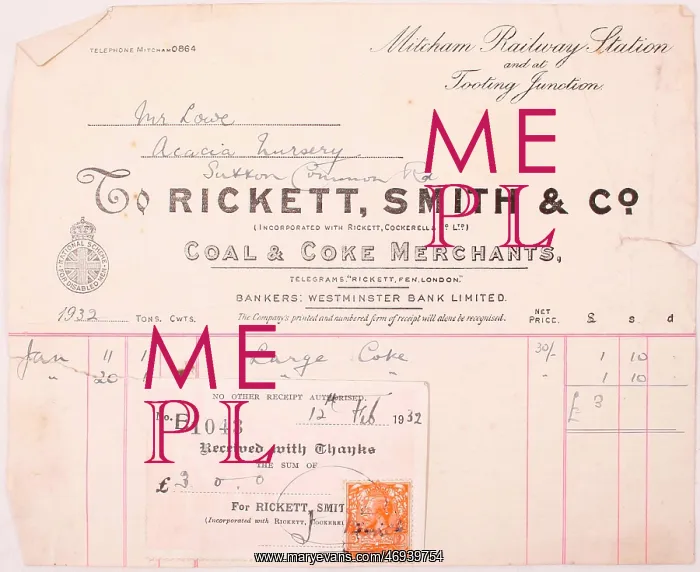 TELEPHONE MITCHAM 0864
Mitcham Railway Station
and at
Tooting Junction.
Mr Lowe
Acacia Nursery
Sutton Common Rd
To RICKETT, SMITH & Co
(INCORPORATED WITH RICKETT, COCKERELL & Co LTD)
COAL & COKE MERCHANTS,
NATIONAL SCHEME FOR DISABLED MEN
TELEGRAMS, "RICKETT, FEN, LONDON."
BANKERS: WESTMINSTER BANK LIMITED.
1932 TONS. CWTS. The Company's printed and numbered form of receipt will alone be recognised. NET PRICE. £ s. d
Jan 11 1 Large Coke 30/- 1 10 -
" 20 " " " 1 10 -
£ 3
NO OTHER RECEIPT AUTHORISED.
No. E 1043 12th Feb 1932
Received with Thanks
THE SUM OF
£ 3 . 0 . 0
For RICKETT, SMIT
(Incorporated with RICKETT, COCKERE
ME
PL
ME
PL
www.maryevans.com/46939754